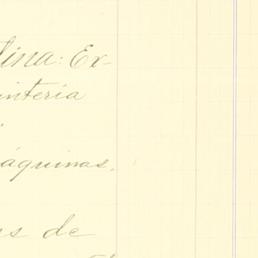 lina: Ex-
interia
áquinas.
s de